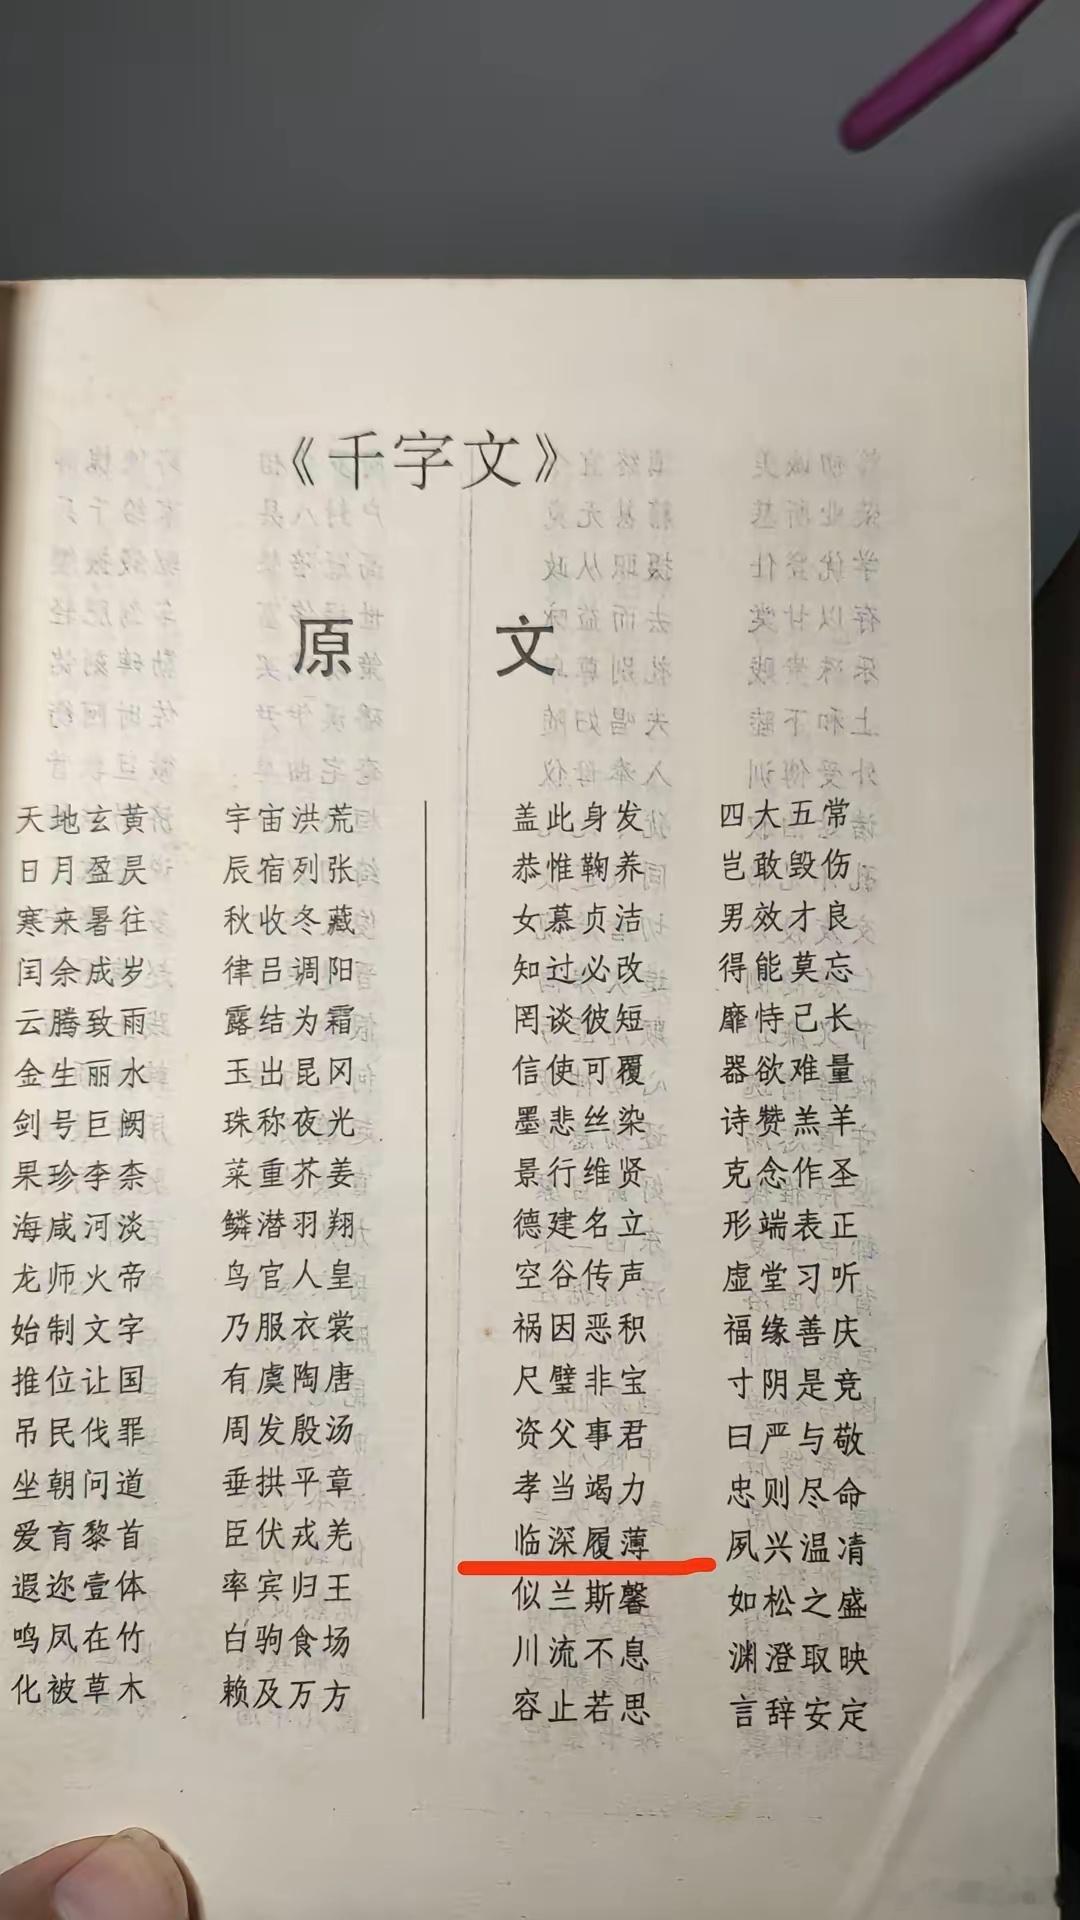 《千字文》
原 文
天地玄黄 宇宙洪荒
日月盈昃 辰宿列张
寒来暑往 秋收冬藏
闰余成岁 律吕调阳
云腾致雨 露结为霜
金生丽水 玉出昆冈
剑号巨阙 珠称夜光
果珍李柰 菜重芥姜
海咸河淡 鳞潜羽翔
龙师火帝 鸟官人皇
始制文字 乃服衣裳
推位让国 有虞陶唐
吊民伐罪 周发殷汤
坐朝问道 垂拱平章
爱育黎首 臣伏戎羌
遐迩壹体 率宾归王
鸣凤在竹 白驹食场
化被草木 赖及万方
盖此身发 四大五常
恭惟鞠养 岂敢毁伤
女慕贞洁 男效才良
知过必改 得能莫忘
罔谈彼短 靡恃己长
信使可覆 器欲难量
墨悲丝染 诗赞羔羊
景行维贤 克念作圣
德建名立 形端表正
空谷传声 虚堂习听
祸因恶积 福缘善庆
尺璧非宝 寸阴是竞
资父事君 曰严与敬
孝当竭力 忠则尽命
临深履薄 夙兴温凊
似兰斯馨 如松之盛
川流不息 渊澄取映
容止若思 言辞安定